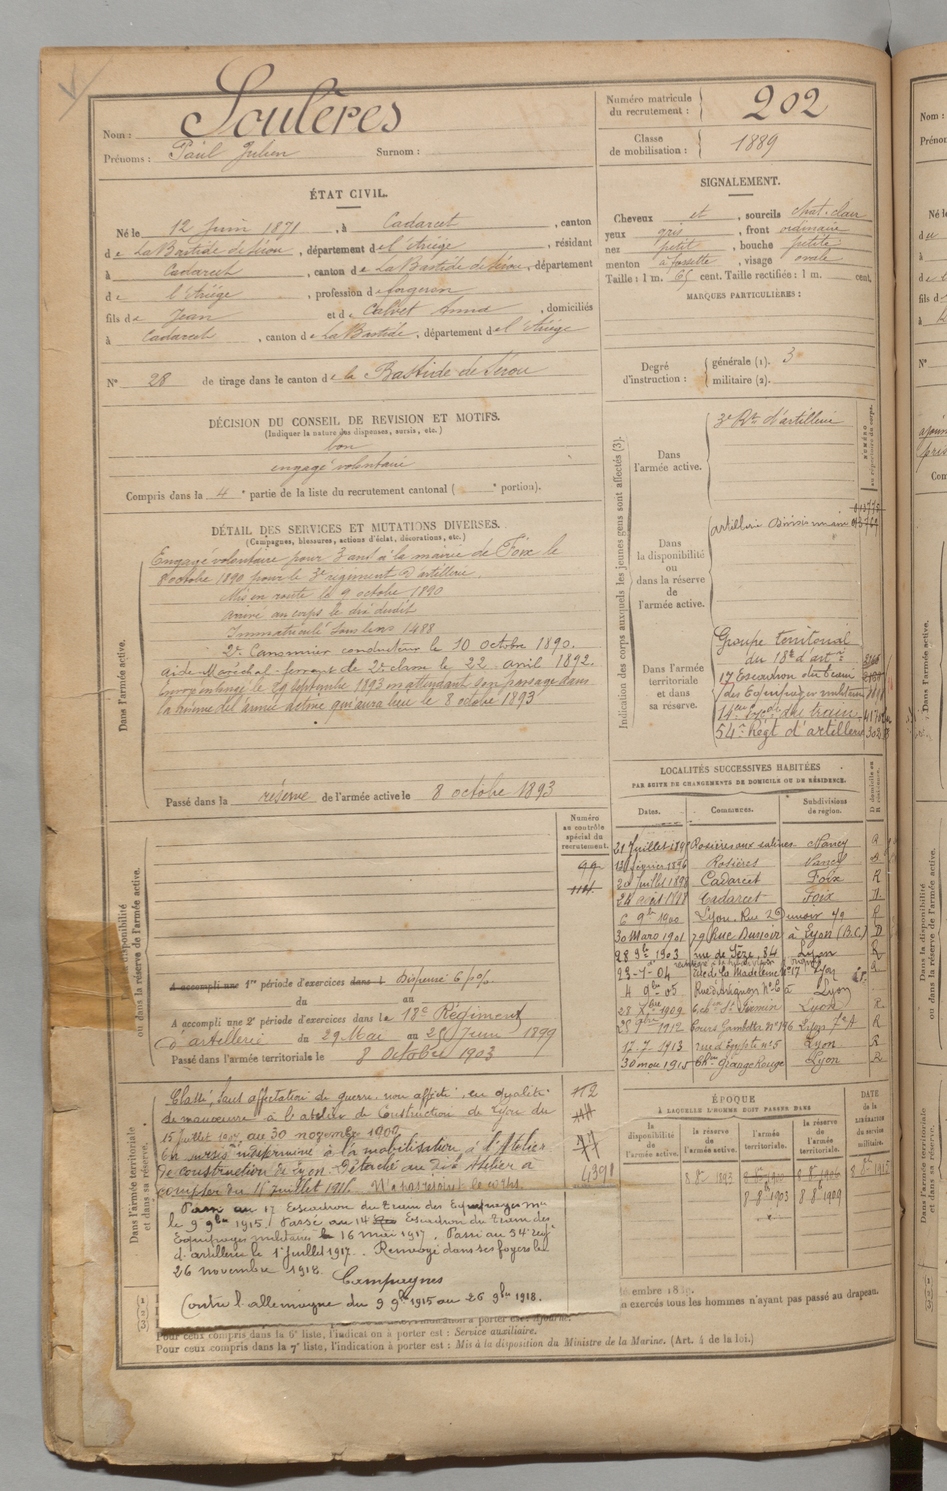 Nom : Soulères
Prénoms : Paul Julien Surnom :
Numéro matricule du recrutement : 202
Classe de mobilisation : 1889
ÉTAT CIVIL.
Né le 12 Juin 1871, à Cadarcet, canton
de La Bastide de Sérou, département de l'Ariège, résidant
à Cadarcet, canton de La Bastide de Sérou, département
de l'Ariège, profession de forgeron
fils de Jean et de Calvet Anna, domiciliés
à Cadarcet, canton de La Bastide, département de l'Ariège
N° 28 de tirage dans le canton de la Bastide de Sérou
SIGNALEMENT.
Cheveux et, sourcils chat. clair
yeux gris, front ordinaire
nez petit, bouche petite
menton à fossette, visage ovale
Taille : 1 m. 65 cent. Taille rectifiée : 1 m. cent.
MARQUES PARTICULIÈRES :
Degré d'instruction : générale (1). 3
militaire (2).
DÉCISION DU CONSEIL DE REVISION ET MOTIFS.
(Indiquer la nature des dispenses, sursis, etc.)
bon
engagé volontaire
Compris dans la 4e partie de la liste du recrutement cantonal ( e portion).
DÉTAIL DES SERVICES ET MUTATIONS DIVERSES.
(Campagnes, blessures, actions d'éclat, décorations, etc.)
Dans l'armée active.
Engagé volontaire pour 3 ans à la mairie de Foix le
8 octobre 1890 pour le 3e régiment d'artillerie.
Mis en route le 9 octobre 1890
arrivé au corps le dix dudit
Immatriculé sous le no 1488
2e Canonnier conducteur le 10 octobre 1890.
aide-Maréchal-ferrant de 2e classe le 22 avril 1892.
le 20 septembre 1893 en attendant son passage dans
la réserve de l'armée active qui aura lieu le 8 octobre 1893
Passé dans la réserve de l'armée active le 8 octobre 1893
Indication des corps auxquels les jeunes gens sont affectés (3).
NUMÉRO au répertoire du corps.
Dans l'armée active.
3e Rt d'artillerie
Dans la disponibilité ou dans la réserve de l'armée active.
artillerie
Dans l'armée territoriale et dans sa réserve.
Groupe territorial
du 18e d'artie
17 Escadron du train
des Equipages militaires
14e du train
54e Régt d'artillerie
LOCALITÉS SUCCESSIVES HABITÉES
PAR SUITE DE CHANGEMENTS DE DOMICILE OU DE RÉSIDENCE.
Dates. Communes. Subdivisions de région. D domicile ou R résidence.
Rosières aux salines Nancy R
13 février 1896 Rosières Nancy
20 Juillet 1898 Cadarcet Foix R
Cadarcet Foix
6 9bre 1900 Lyon, Rue Dunoir 79 R
30 Mars 1901 79 Rue Dunoir à Lyon (B.C.) D
28 1903 rue de Sèze, 84 Lyon R
23-7-04 rue de la Madeleine n° 17 Lyon R
4 9bre 05 Rue d'Avignon n° 6 à Lyon
28 Xbre 1909 6 ch. St Firmin Lyon R
1912 Cours Gambetta N° 176 Lyon R
17-7-1913 rue d'Egypte n° 5 Lyon R
30 mai 1915 Ch. Grange Rouge Lyon R
Numéro au contrôle spécial du recrutement.
Dans la disponibilité ou dans la réserve de l'armée active.
A accompli une 1re période d'exercices dans l Dispensé
du au
A accompli une 2e période d'exercices dans le 18e Régiment
d'artillerie du 29 Mai au 25 Juin 1899
Passé dans l'armée territoriale le 8 Octobre 1903
Dans l'armée territoriale et dans sa réserve.
Classé, sans affectation de guerre, non affecté, en qualité
de manœuvre à l'atelier de Construction de Lyon du
15 juillet au 30 novembre 1909
En sursis indéterminé à la mobilisation à l'Atelier
de construction de Lyon. Détaché au dit Atelier à
compter du 15 juillet 1915.
Passé au 17 Escadron du train des Equipages mres
le 9 9bre 1915. Passé au 14 Escadron du train des
Equipages militaires le 16 mai 1917. Passé au 54e rég
d'artillerie le 1er juillet 1917. Renvoyé dans ses foyers le
26 novembre 1918.
Campagnes
Contre l'allemagne du 9 9bre 1915 au 26 9bre 1918.
112
4398
ÉPOQUE
À LAQUELLE L'HOMME DOIT PASSER DANS
la disponibilité de l'armée active.
la réserve de l'armée active.
l'armée territoriale.
la réserve de l'armée territoriale.
DATE de la LIBÉRATION du service militaire.
8 8bre 1893
8-8bre 1903 8-8bre 1909
embre 18
n exercés tous les hommes n'ayant pas passé au drapeau.
Pour ceux compris dans la 6e liste, l'indication à porter est : Service auxiliaire.
Pour ceux compris dans la 7e liste, l'indication à porter est : Mis à la disposition du Ministre de la Marine. (Art. 4 de la loi.)